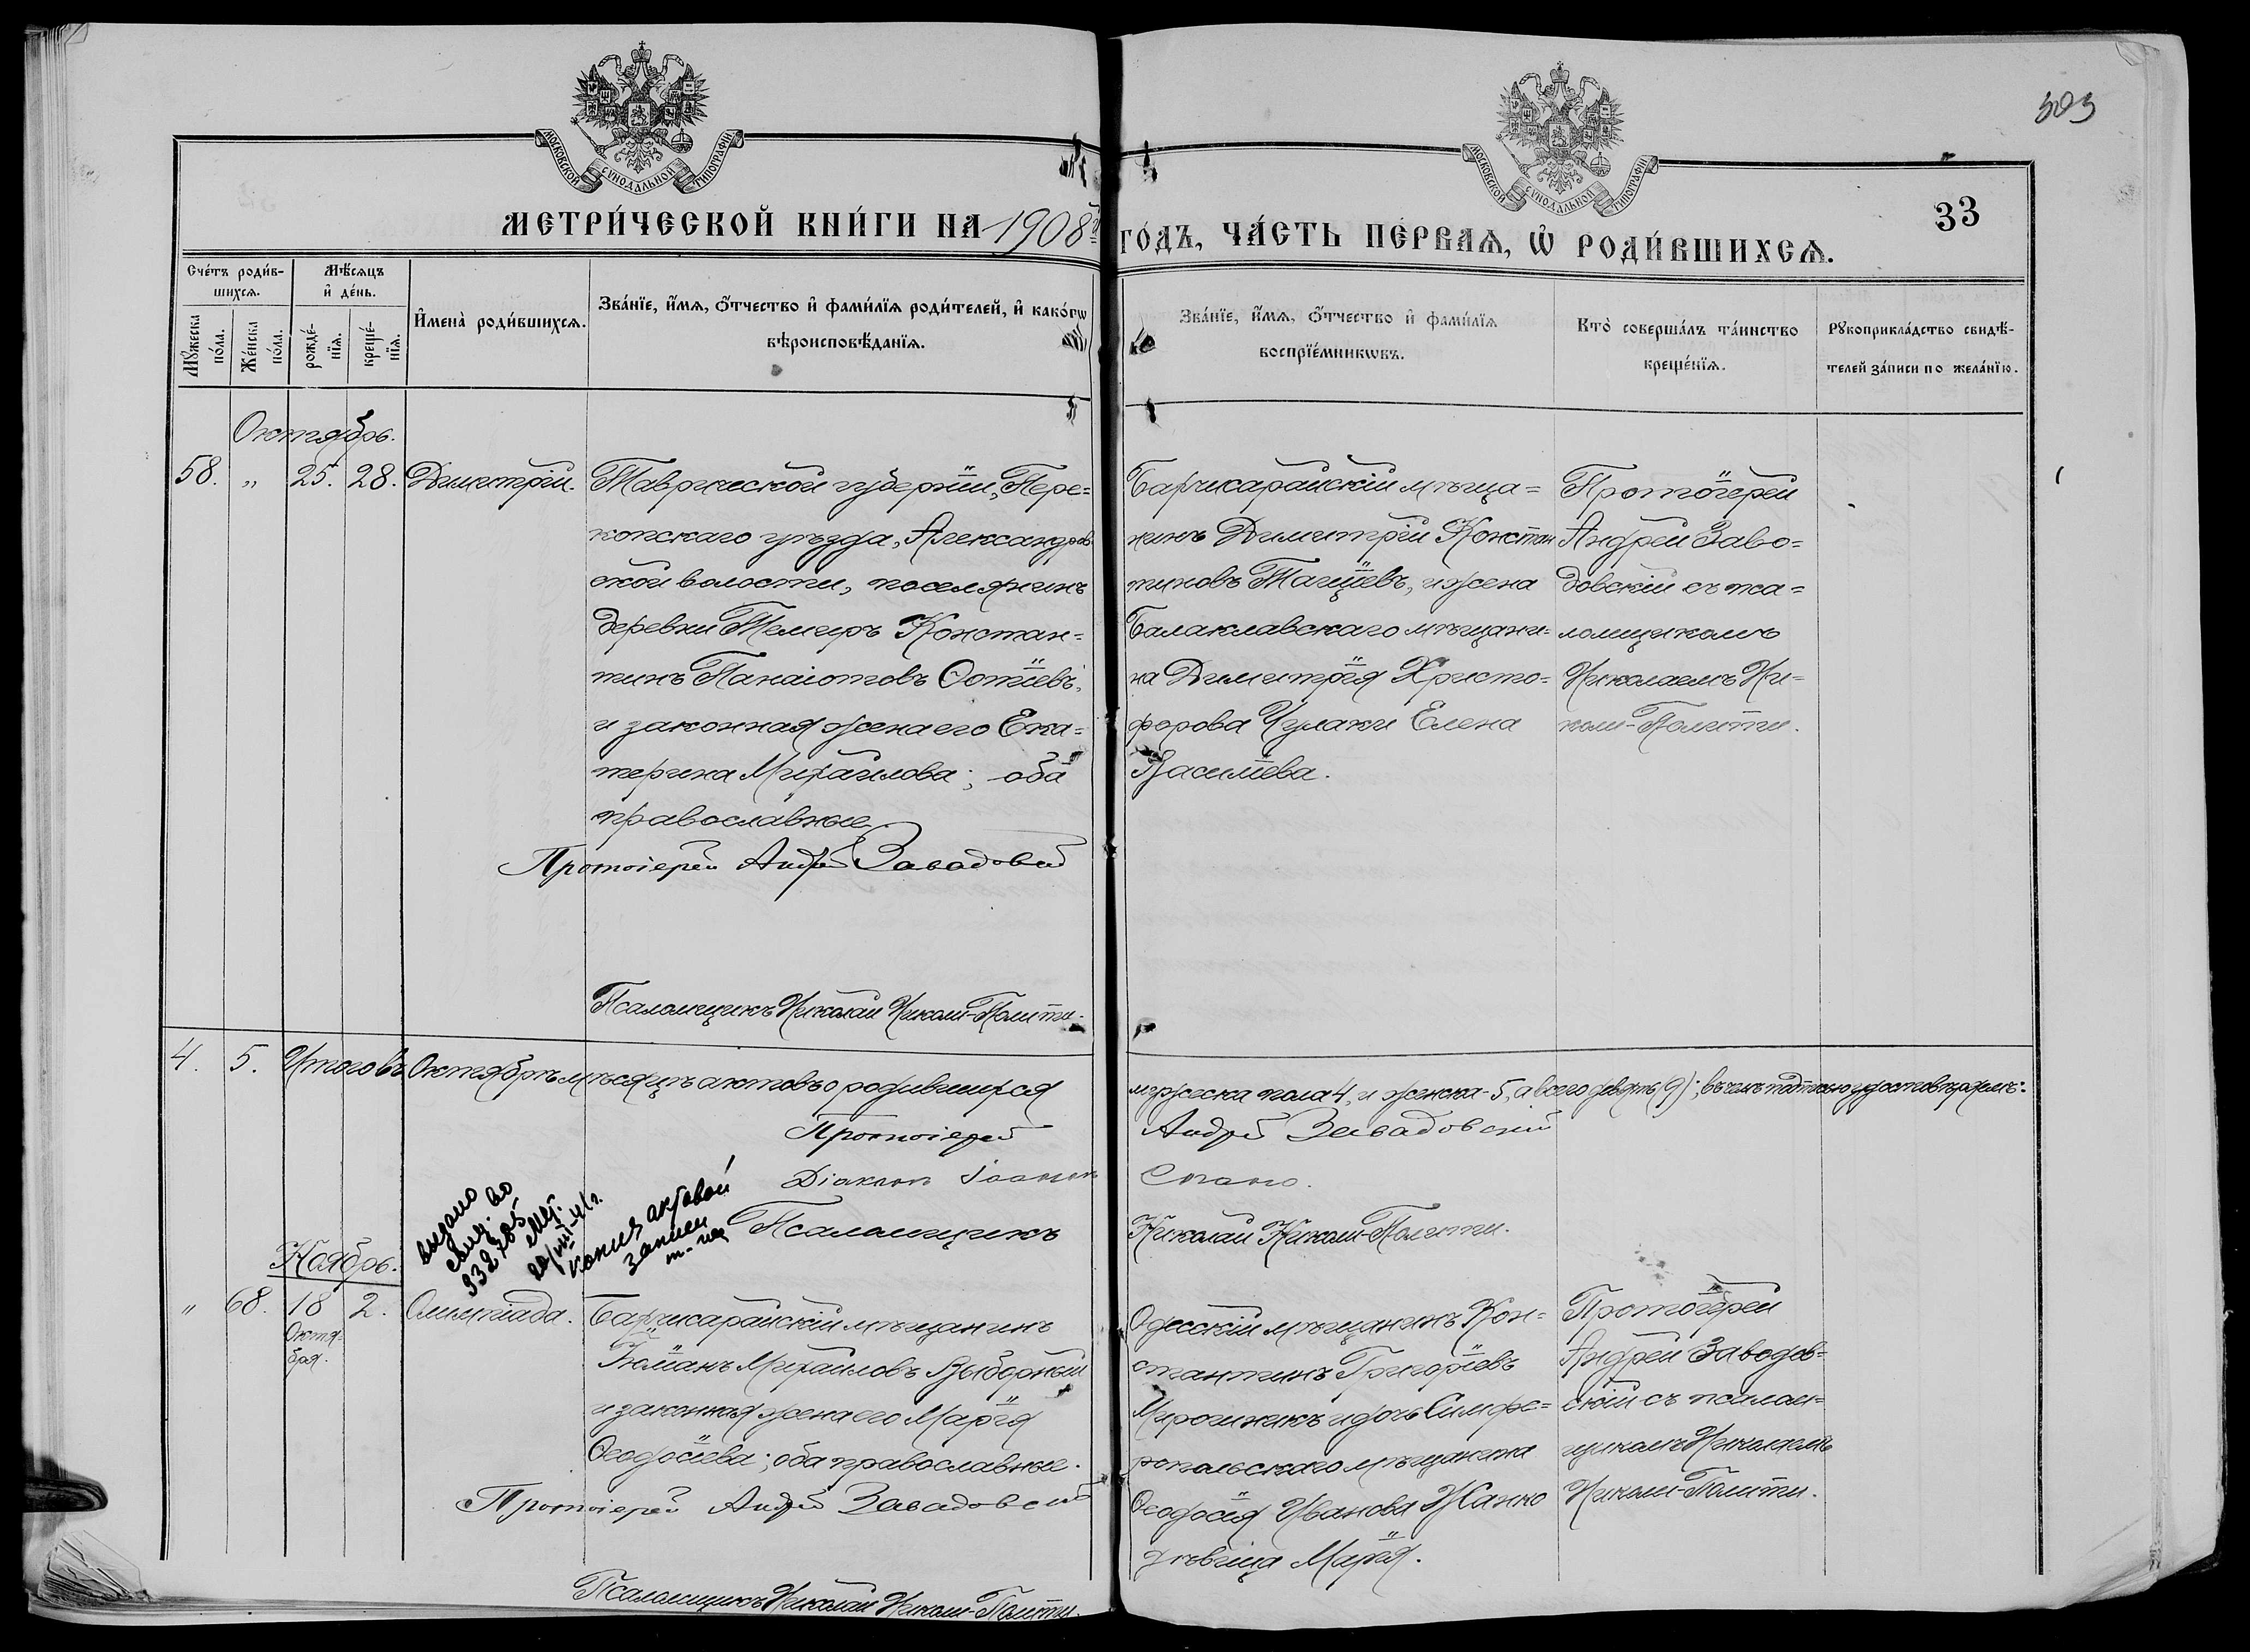 303
33
МОСКОВСКОЙ СУНОДАЛЬНОЙ ТИПОГРАФІИ
МОСКОВСКОЙ СУНОДАЛЬНОЙ ТИПОГРАФІИ
МЕТРИ́ЧЕСКОЙ КНИ́ГИ НА 1908й
ГО́ДЪ, ЧА́СТЬ ПЕ́РВАѦ, Ѡ҆ РОДИ́ВШИХСѦ.
Сче́тъ роди́в-
шихсѧ.
Мꙋ́жеска по́ла.
Же́нска по́ла.
Мѣ́сѧцъ
и҆ де́нь.
рожде́-
нїѧ.
креще́-
нїѧ.
И҆мена̀ роди́вшихсѧ.
Зва́нїе, и҆́мѧ, ѻ҆́тчество и҆ фами́лїѧ роди́телей, и҆ како́гѡ
вѣроисповѣ́данїѧ.
Зва́нїе, и҆́мѧ, ѻ҆́тчество и҆ фами́лїѧ
воспрїе́мникѡвъ.
Кто̀ соверша́лъ та́инство
креще́нїѧ.
Рꙋкоприкла́дство свидѣ́-
телей за́писи по жела́нїю.
Октябрь.
58. „ 25. 28. Димитрій.
Таврической губерніи, Пере=
копскаго уѣзда, Александров
ской волости, поселянинъ
деревни Темиръ Констан=
тинъ Панаіотовъ Ѳотіевъ,
и законная жена его Ека=
терина Михайлова; оба
православные.
Протоіерей Андрей Завадовскій
Псаломщикъ Николай Николи-Полити.
Бахчисарайскій мѣща=
нинъ Димитрій Констан
тиновъ Тагціевъ, и жена
Балаклавскаго мѣщани=
на Димитрія Христо=
форова Чулаки Елена
Васильева.
Протоіерей
Андрей Заво=
довскій съ пса=
ломщикомъ
Николаемъ Ни=
коли-Полити.
4. 5. Итого въ Октябрѣ мѣсяцѣ актовъ о родившихся
мужеска пола 4, и женска-5, а всего девять (9); въ чемъ подписью удостовѣряемъ:
Протоіерей Андрей Завадовскій
Діаконъ Іоаннъ Спано.
Псаломщикъ Николай Николи-Полити.
выдано
свид. во
932785
копия актовой
записи
Ноябрь.
„ 68. 18 2. Олимпіада.
Октя-
бря.
Бахчисарайскій мѣщанинъ
Романъ Михайловъ Выборный
и законная жена его Марія
Ѳеодосіева; оба православные.
Протоіерей Андрей Завадовскій
Псаломщикъ Николай Николи-Полити.
Одесскій мѣщанинъ Кон=
стантинъ Григоріевъ
Мирошникъ и дочь Симфе=
ропольскаго мѣщанина
Ѳеодосія Иванова Жанко
дѣвица Марія.
Протоіерей
Андрей Заводов=
скій съ псалом=
щикомъ Николаемъ
Николи-Полити.